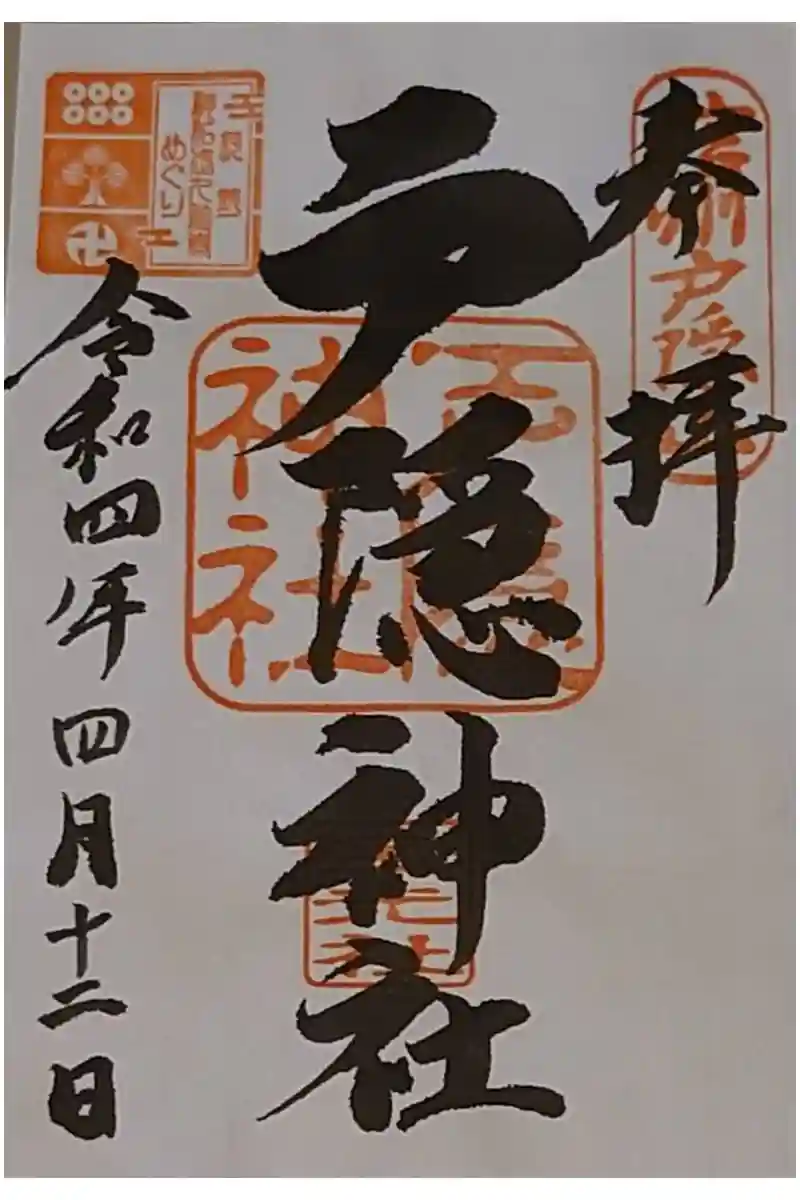 奉拝
戸隠神社
令和四年四月十二日
信州戸隠
戸隠
神社
めぐり